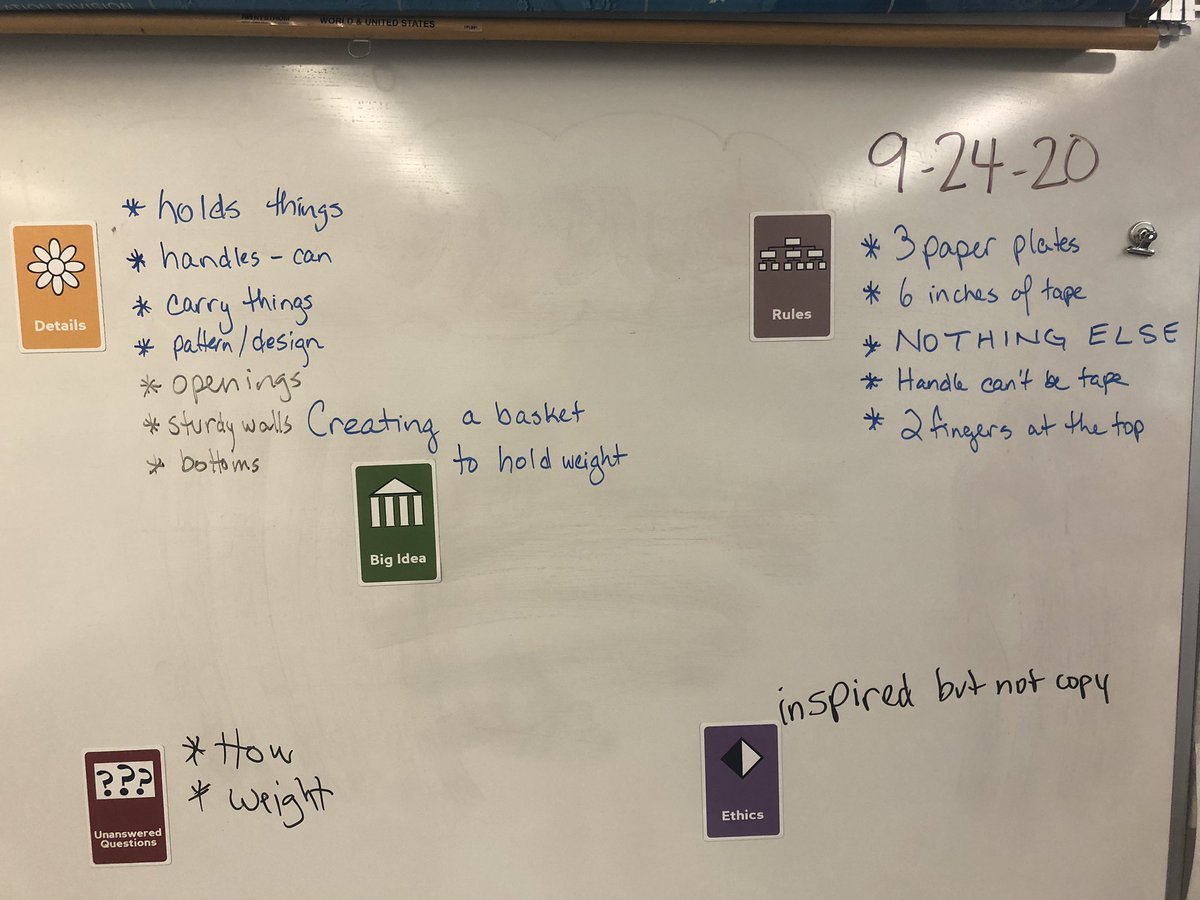 ATION DIVISION
NYSTROM WORLD & UNITED STATES
9-24-20
* holds things
* handles - can
* carry things
* pattern/design
* openings
* sturdy walls
* bottoms
Details
* 3 paper plates
* 6 inches of tape
* NOTHING ELSE
* Handle can't be tape
* 2 fingers at the top
Rules
Creating a basket
to hold weight
Big Idea
* How
* weight
???
Unanswered
Questions
inspired but not copy
Ethics